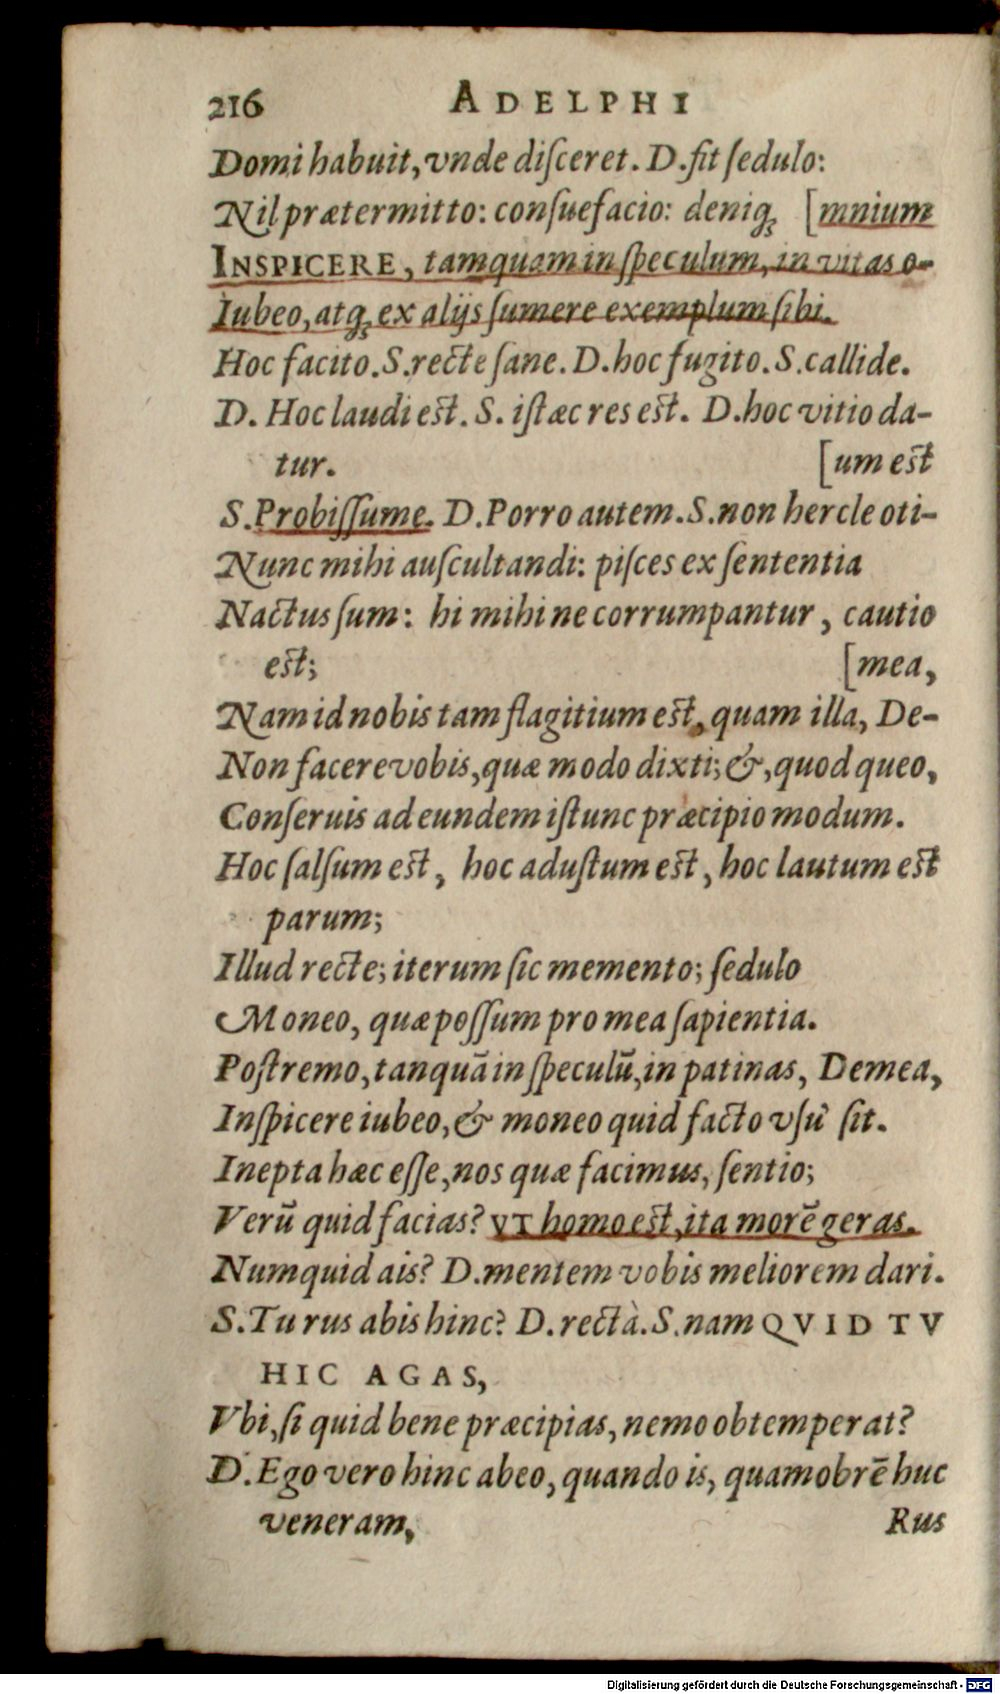 216 ADELPHI
Domi habuit, vnde diſceret. D. fit ſedulo:
Nil prætermitto: conſuefacio: deniq; [mnium
INSPICERE, tamquam in ſpeculum, in vitas o-
Iubeo, atq; ex alijs ſumere exemplum ſibi.
Hoc facito. S. recte ſane. D. hoc fugito. S. callide.
D. Hoc laudi est. S. iſtæc res est. D. hoc vitio da-
tur. [um est
S. Probiſſume. D. Porro autem. S. non hercle oti-
Nunc mihi auſcultandi: piſces ex ſententia
Nactus ſum: hi mihi ne corrumpantur, cautio
est; [mea,
Nam id nobis tam flagitium est, quam illa, De-
Non facere vobis, quæ modo dixti; &, quod queo,
Conſeruis ad eundem iſtunc præcipio modum.
Hoc ſalſum est, hoc aduſtum est, hoc lautum est
parum;
Illud recte; iterum ſic memento; ſedulo
Moneo, quæ poſſum pro mea ſapientia.
Poſtremo, tanquā in ſpeculū, in patinas, Demea,
Inſpicere iubeo, & moneo quid facto vſū ſit.
Inepta hæc eſſe, nos quæ facimus, ſentio;
Verū quid facias? VT homo est, ita morē geras.
Numquid ais? D. mentem vobis meliorem dari.
S. Tu rus abis hinc? D. rectà. S. nam QVID TV
HIC AGAS,
Vbi, ſi quid bene præcipias, nemo obtemperat?
D. Ego vero hinc abeo, quando is, quamobrē huc
veneram, Rus
Digitalisierung gefördert durch die Deutsche Forschungsgemeinschaft - DFG